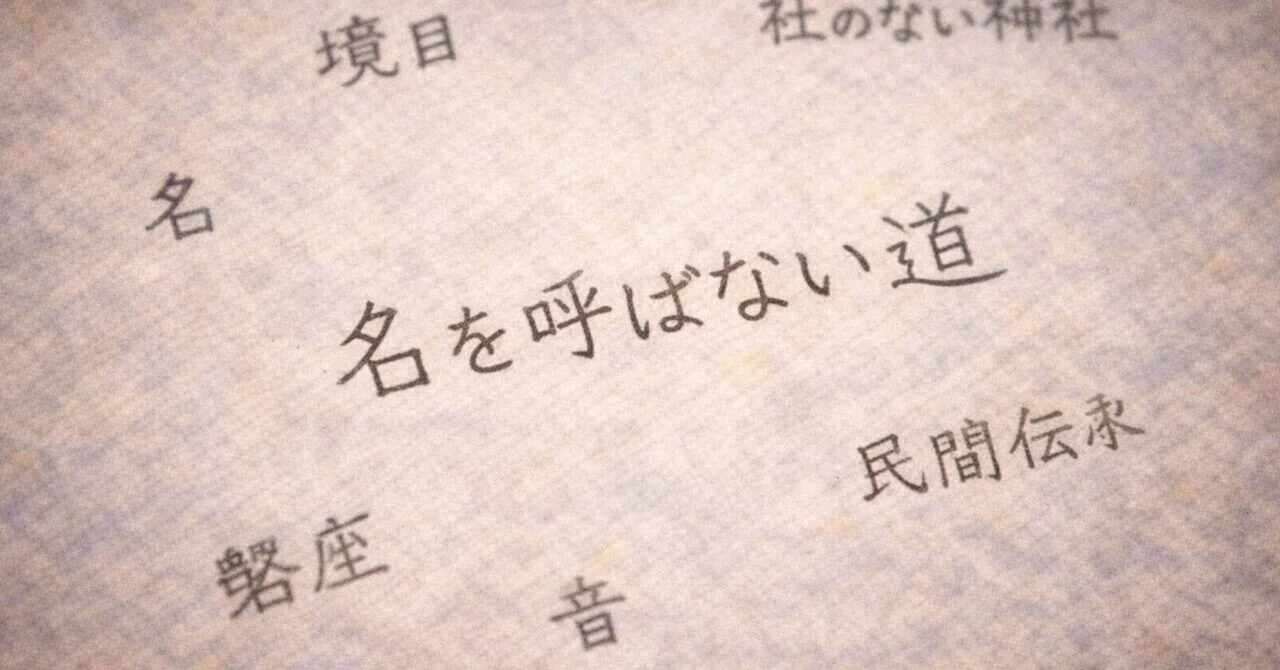 境目
社のない神社
名
名を呼ばない道
民間伝承
磐座
音